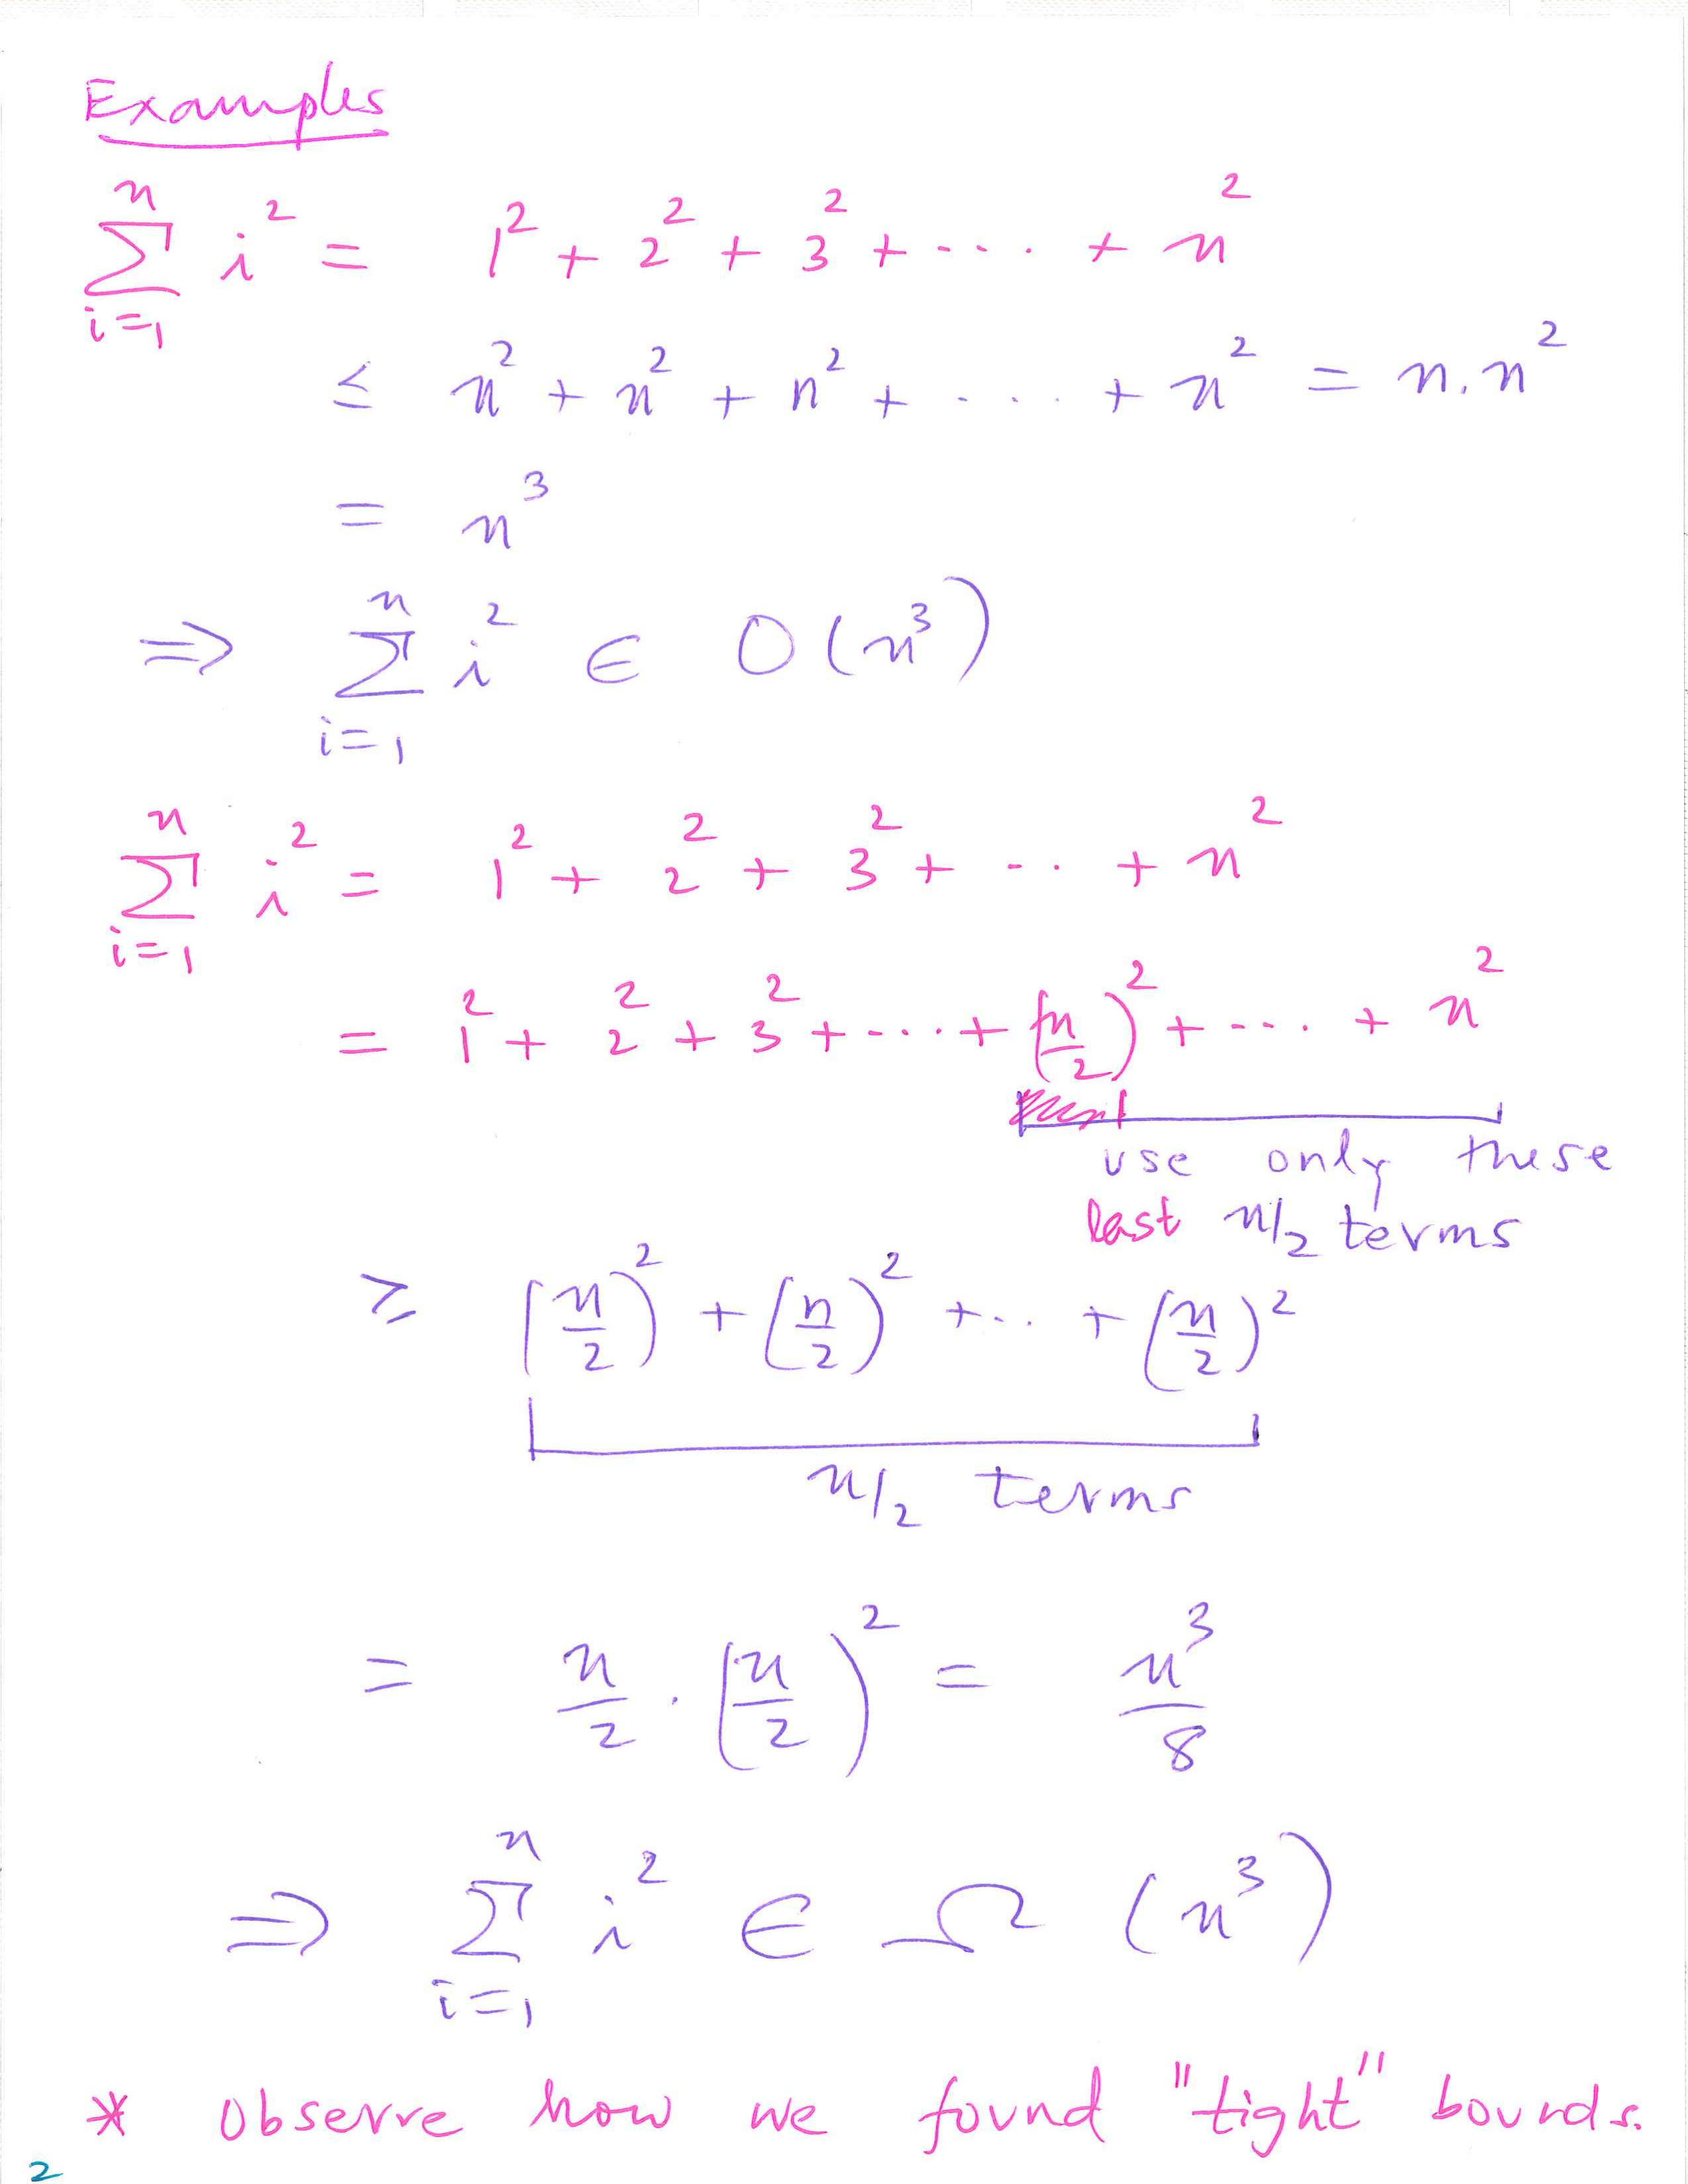 Examples
∑_{i=1}^{n} i² = 1² + 2² + 3² + ---. + n²
≤ n² + n² + n² + .... + n² = n.n²
= n³
⇒ ∑_{i=1}^{n} i² ∈ O(n³)
∑_{i=1}^{n} i² = 1² + 2² + 3² + -.. + n²
= 1² + 2² + 3² + --.. + (n/2)² + --.. + n²
use only these
last n/2 terms
≥ (n/2)² + (n/2)² + .. + (n/2)²
n/2 terms
= n/2 . (n/2)² = n³/8
⇒ ∑_{i=1}^{n} i² ∈ Ω (n³)
* Observe how we found "tight" bounds.
2